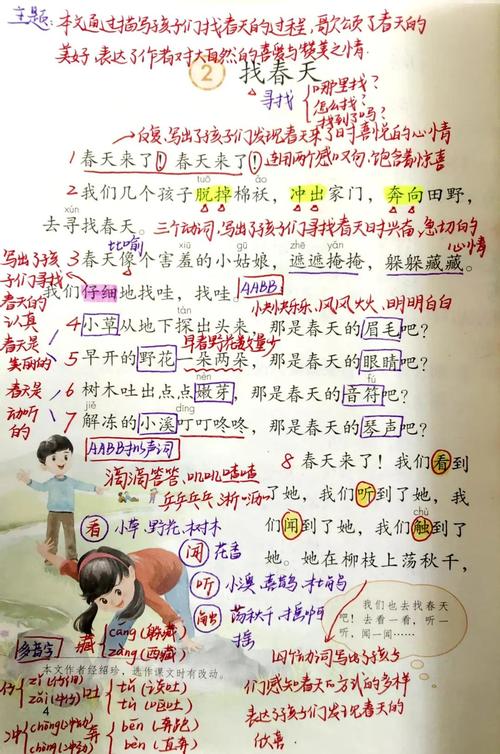 主题：本文通过描写孩子们找春天的过程，歌颂了春天的
美好，表达了作者对大自然的喜爱与赞美之情.
2 找春天
寻找
哪里找？
怎么找？
找到了吗？
反复，写出了孩子们发现春天来了时喜悦的心情
1 春天来了！春天来了！
连用两个感叹句，饱含着惊喜
tuō diào
2 我们几个孩子脱掉棉袄，冲出家门，奔向田野，
xún
去寻找春天。
三个动词，写出了孩子们寻找春天时兴奋、急切的
心情
比喻
xiū zhē yǎn duǒ cáng
3 春天像个害羞的小姑娘，遮遮掩掩，躲躲藏藏。
我们仔细地找哇，找哇。
AABB
小快快乐乐、风风火火、明明白白
写出了孩
子们寻找
春天的
认真
4 小草从地下探出头来，那是春天的眉毛吧？
早春野花数量少
5 早开的野花一朵两朵，那是春天的眼睛吧？
春天是
美丽的
nèn fú
6 树木吐出点点嫩芽，那是春天的音符吧？
jiě dīng
7 解冻的小溪叮叮咚咚，那是春天的琴声吧？
春天是
动听
的
AABB拟声词
滴滴答答、叽叽喳喳
乒乒乓乓、淅淅沥沥
8 春天来了！我们看到
了她，我们听到了她，我
chù
们闻到了她，我们触到了
她。她在柳枝上荡秋千，
看 小草、野花、树木
闻 花香
听 小溪、喜鹊、杜鹃
触 荡秋千、
摇
我们也去找春天
吧！去看一看，听一
听，闻一闻……
多音字
藏 cáng（躲藏）
zàng（西藏）
本文作者经绍珍，选作课文时有改动。
仔 zǐ（仔细）
zǎi（牛仔）
吐 tǔ（谈吐）
tù（呕吐）
4
冲 chōng（冲动）
chòng（冲劲）
奔 bēn（奔跑）
bèn（直奔）
四个动词写出了孩子
们感知春天的方式的多样
表达了孩子们发现春天的
欣喜